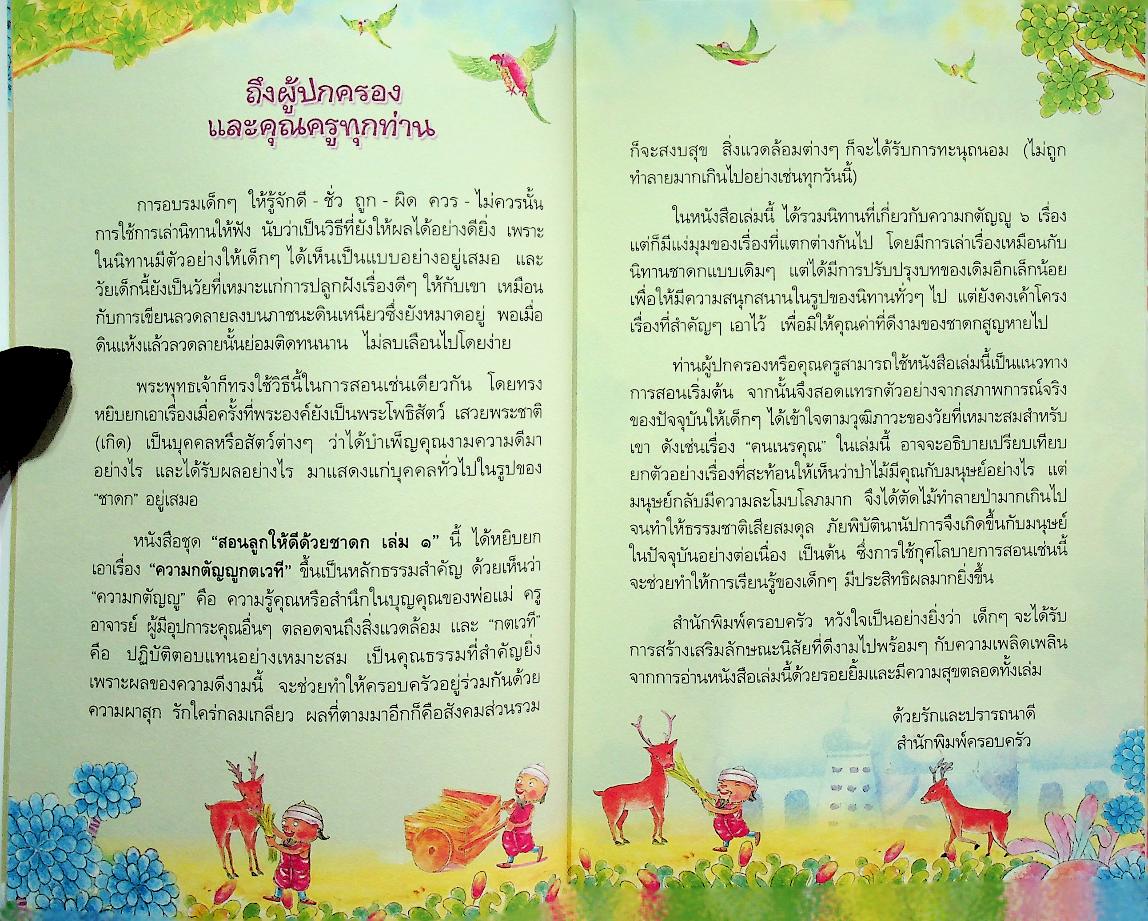 ถึงผู้ปกครอง
และคุณครูทุกท่าน
การอบรมเด็กๆ ให้รู้จักดี - ชั่ว ถูก - ผิด ควร - ไม่ควรนั้น
การใช้การเล่านิทานให้ฟัง นับว่าเป็นวิธีที่ยังให้ผลได้อย่างดียิ่ง เพราะ
ในนิทานมีตัวอย่างให้เด็กๆ ได้เห็นเป็นแบบอย่างอยู่เสมอ และ
วัยเด็กนี้ยังเป็นวัยที่เหมาะแก่การปลูกฝังเรื่องดีๆ ให้กับเขา เหมือน
กับการเขียนลวดลายลงบนภาชนะดินเหนียวซึ่งยังหมาดอยู่ พอเมื่อ
ดินแห้งแล้วลวดลายนั้นย่อมติดทนนาน ไม่ลบเลือนไปโดยง่าย
พระพุทธเจ้าก็ทรงใช้วิธีนี้ในการสอนเช่นเดียวกัน โดยทรง
หยิบยกเอาเรื่องเมื่อครั้งที่พระองค์ยังเป็นพระโพธิสัตว์ เสวยพระชาติ
(เกิด) เป็นบุคคลหรือสัตว์ต่างๆ ว่าได้บำเพ็ญคุณงามความดีมา
อย่างไร และได้รับผลอย่างไร มาแสดงแก่บุคคลทั่วไปในรูปของ
“ชาดก” อยู่เสมอ
หนังสือชุด “สอนลูกให้ดีด้วยชาดก เล่ม ๑” นี้ ได้หยิบยก
เอาเรื่อง “ความกตัญญูกตเวที” ขึ้นเป็นหลักธรรมสำคัญ ด้วยเห็นว่า
“ความกตัญญู” คือ ความรู้คุณหรือสำนึกในบุญคุณของพ่อแม่ ครู
อาจารย์ ผู้มีอุปการะคุณอื่นๆ ตลอดจนถึงสิ่งแวดล้อม และ “กตเวที”
คือ ปฏิบัติตอบแทนอย่างเหมาะสม เป็นคุณธรรมที่สำคัญยิ่ง
เพราะผลของความดีงามนี้ จะช่วยทำให้ครอบครัวอยู่ร่วมกันด้วย
ความผาสุก รักใคร่กลมเกลียว ผลที่ตามมาอีกก็คือสังคมส่วนรวม
ก็จะสงบสุข สิ่งแวดล้อมต่างๆ ก็จะได้รับการทะนุถนอม (ไม่ถูก
ทำลายมากเกินไปอย่างเช่นทุกวันนี้)
ในหนังสือเล่มนี้ ได้รวมนิทานที่เกี่ยวกับความกตัญญู ๖ เรื่อง
แต่ก็มีแง่มุมของเรื่องที่แตกต่างกันไป โดยมีการเล่าเรื่องเหมือนกับ
นิทานชาดกแบบเดิมๆ แต่ได้มีการปรับปรุงบทของเดิมอีกเล็กน้อย
เพื่อให้มีความสนุกสนานในรูปของนิทานทั่วๆ ไป แต่ยังคงเค้าโครง
เรื่องที่สำคัญๆ เอาไว้ เพื่อมิให้คุณค่าที่ดีงามของชาดกสูญหายไป
ท่านผู้ปกครองหรือคุณครูสามารถใช้หนังสือเล่มนี้เป็นแนวทาง
การสอนเริ่มต้น จากนั้นจึงสอดแทรกตัวอย่างจากสภาพการณ์จริง
ของปัจจุบันให้เด็กๆ ได้เข้าใจตามวุฒิภาวะของวัยที่เหมาะสมสำหรับ
เขา ดังเช่นเรื่อง “คนเนรคุณ” ในเล่มนี้ อาจจะอธิบายเปรียบเทียบ
ยกตัวอย่างเรื่องที่สะท้อนให้เห็นว่าป่าไม้มีคุณกับมนุษย์อย่างไร แต่
มนุษย์กลับมีความละโมบโลภมาก จึงได้ตัดไม้ทำลายป่ามากเกินไป
จนทำให้ธรรมชาติเสียสมดุล ภัยพิบัตินานัปการจึงเกิดขึ้นกับมนุษย์
ในปัจจุบันอย่างต่อเนื่อง เป็นต้น ซึ่งการใช้กุศโลบายการสอนเช่นนี้
จะช่วยทำให้การเรียนรู้ของเด็กๆ มีประสิทธิผลมากยิ่งขึ้น
สำนักพิมพ์ครอบครัว หวังใจเป็นอย่างยิ่งว่า เด็กๆ จะได้รับ
การสร้างเสริมลักษณะนิสัยที่ดีงามไปพร้อมๆ กับความเพลิดเพลิน
จากการอ่านหนังสือเล่มนี้ด้วยรอยยิ้มและมีความสุขตลอดทั้งเล่ม
ด้วยรักและปรารถนาดี
สำนักพิมพ์ครอบครัว